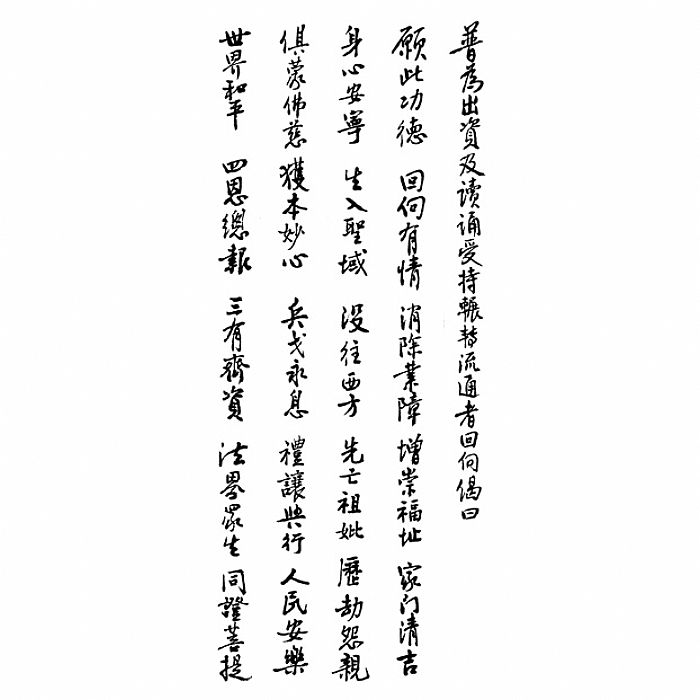 普為出資及讀誦受持輾轉流通者回向偈曰
願此功德 回向有情 消除業障 增崇福址 家门清吉
身心安寧 生入聖域 没往西方 先亡祖妣 歷劫怨親
俱蒙佛慈 獲本妙心 兵戈永息 禮讓興行 人民安樂
世界和平 四恩總報 三有齊資 法界眾生 同證菩提